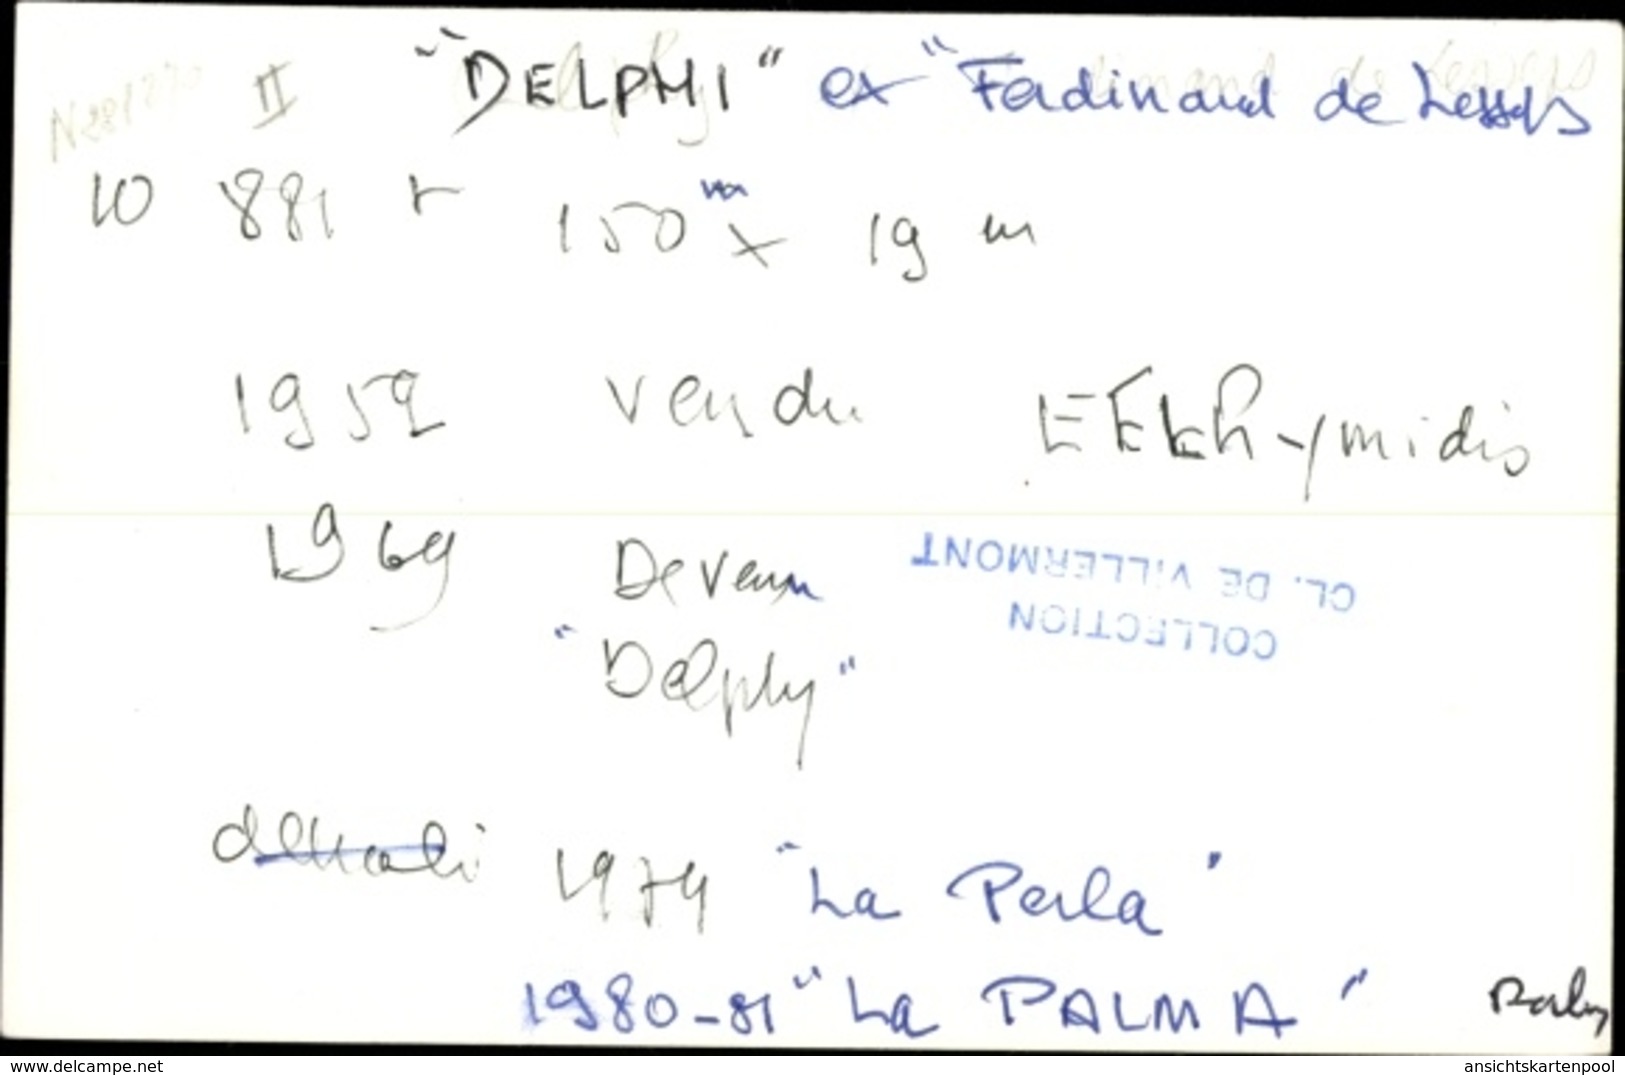 II "DELPHI" ex "Ferdinand de Lesseps
10 881 t 150 m x 19 m
1952 vendu EFthymidis
1969 Devenu
"Delphy"
COLLECTION
CL. DE VILLERMONT
1974 "La Perla"
1980-81 "La PALMA"
akpool.de
ansichtskartenpool